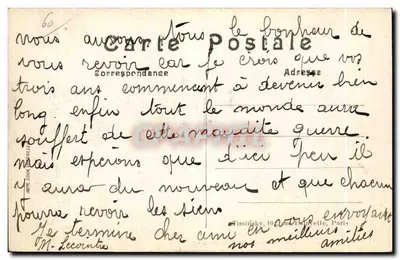 60
nous aurons tous le bonheur de
Carte Postale
vous revoir car je crois que vos
Correspondance
Adresse
trois ans commencent à devenir bien
long. enfin tout le monde aura
souffert de cette maudite guerre
mais espérons que d'ici peu il
y aura du nouveau et que chacun
pourra revoir les siens
Paris
Je termine cher ami en vous envoyant
nos meilleurs amitiés
M. Lecointre